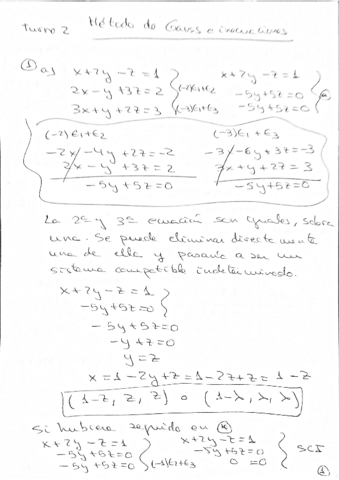 Turno 2 Método de Gauss e inecuaciones
① a) x+2y-z=1 x+2y-z=1
2x-y+3z=2 (-2)E1+E2 -5y+5z=0
3x+y+2z=3 (-3)E1+E3 -5y+5z=0 *
(-2)E1+E2 (-3)E1+E3
-2x-4y+2z=-2 -3x-6y+3z=-3
2x-y+3z=2 3x+y+2z=3
-5y+5z=0 -5y+5z=0
La 2ª y 3ª ecuación son iguales, sobra
una. Se puede eliminar directamente
una de ella y pasaría a ser un
sistema compatible indeterminado.
x+2y-z=1
-5y+5z=0
-5y+5z=0
-y+z=0
y=z
x=1-2y+z=1-2z+z=1-z
(1-z, z, z) o (1-λ, λ, λ)
Si hubiera seguido en *
x+2y-z=1 x+2y-z=1
-5y+5z=0 -5y+5z=0 SCI
-5y+5z=0 (-1)E2+E3 0=0
①